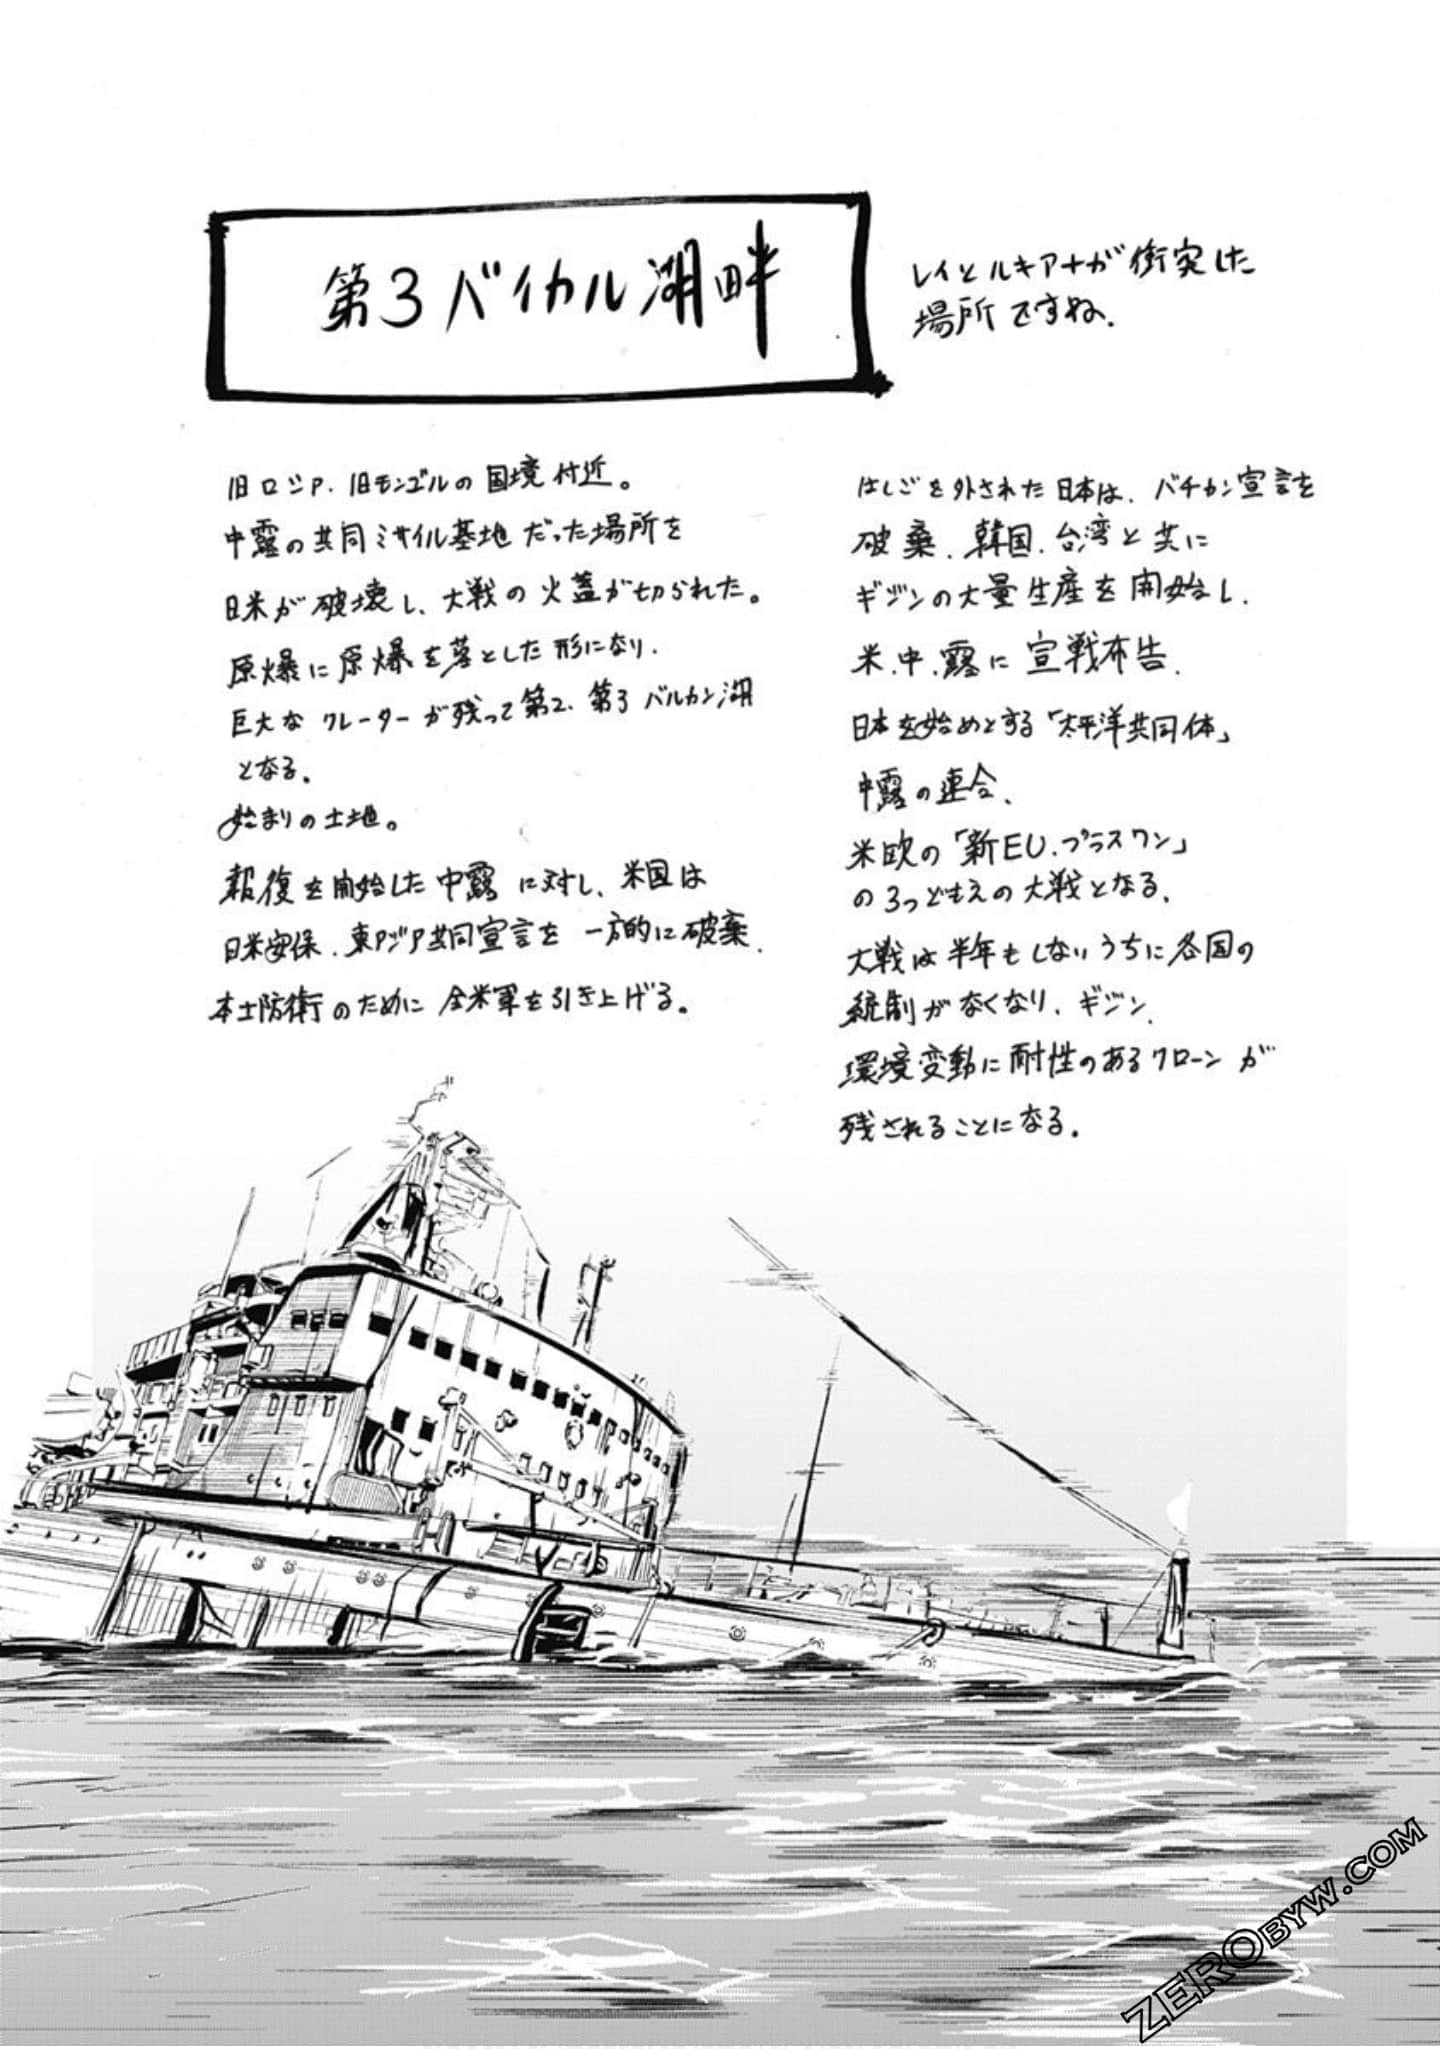 第3バイカル湖畔
レイとルキアナが衝突した
場所ですね.
旧ロシア.旧モンゴルの国境付近。
中露の共同ミサイル基地だった場所を
日米が破壊し、大戦の火蓋が切られた。
原爆に原爆を落とした形になり.
巨大なクレーターが残って第2.第3バルカン湖
となる。
始まりの土地。
報復を開始した中露に対し、米国は
日米安保.東アジア共同宣言を一方的に破棄.
本土防衛のために全米軍を引き上げる。
はしごを外された日本は、バチカン宣言を
破棄.韓国.台湾と共に
ギジンの大量生産を開始し.
米.中.露に宣戦布告.
日本を始めとする「太平洋共同体」
中露の連合、
米欧の「新EU.プラスワン」
の3つどもえの大戦となる.
大戦は半年もしないうちに各国の
統制がなくなり、ギジン.
環境変動に耐性のあるクローンが
残されることになる.
ZEROBYW.COM